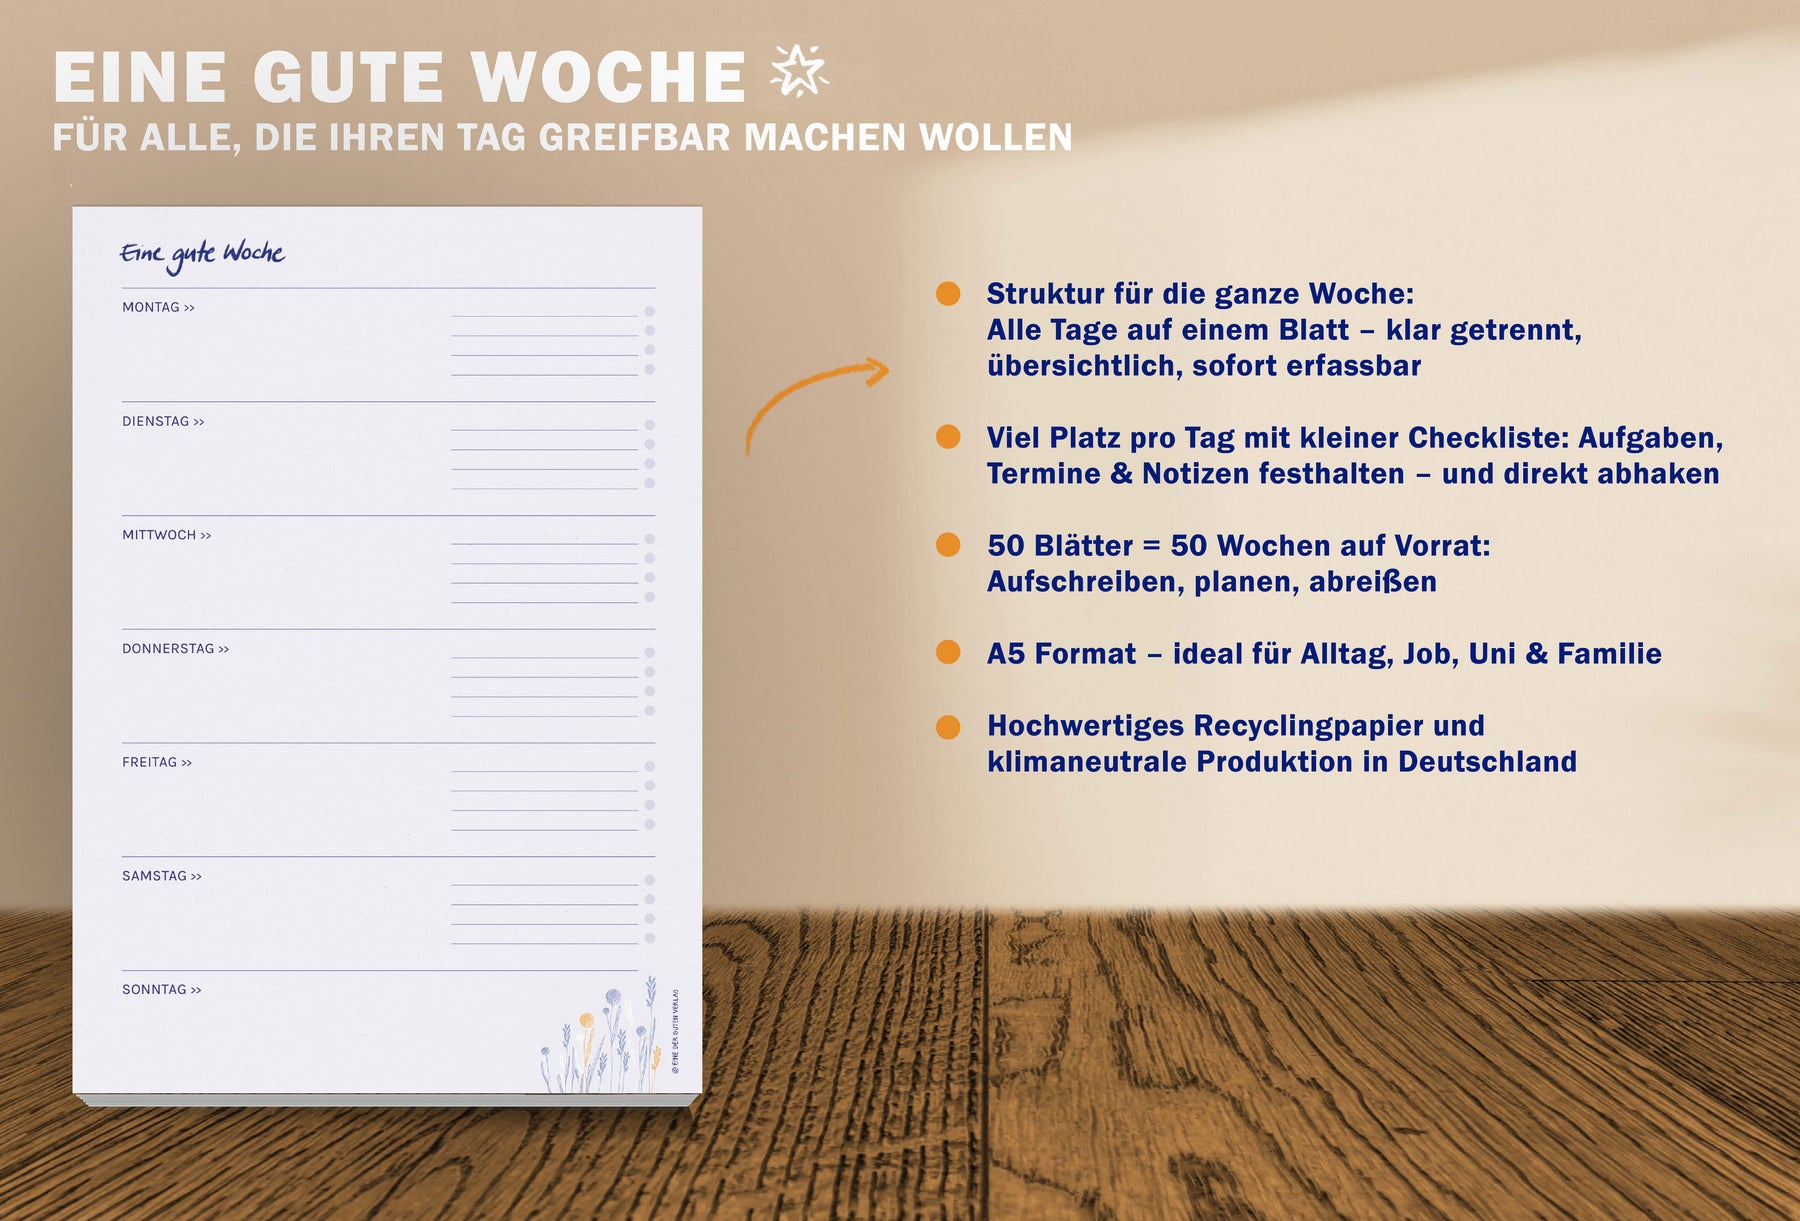 EINE GUTE WOCHE
FÜR ALLE, DIE IHREN TAG GREIFBAR MACHEN WOLLEN
Eine gute Woche
MONTAG >>
DIENSTAG >>
MITTWOCH >>
DONNERSTAG >>
FREITAG >>
SAMSTAG >>
SONNTAG >>
@ EINE DER GUTEN VERLAG
Struktur für die ganze Woche:
Alle Tage auf einem Blatt – klar getrennt,
übersichtlich, sofort erfassbar
Viel Platz pro Tag mit kleiner Checkliste: Aufgaben,
Termine & Notizen festhalten – und direkt abhaken
50 Blätter = 50 Wochen auf Vorrat:
Aufschreiben, planen, abreißen
A5 Format – ideal für Alltag, Job, Uni & Familie
Hochwertiges Recyclingpapier und
klimaneutrale Produktion in Deutschland